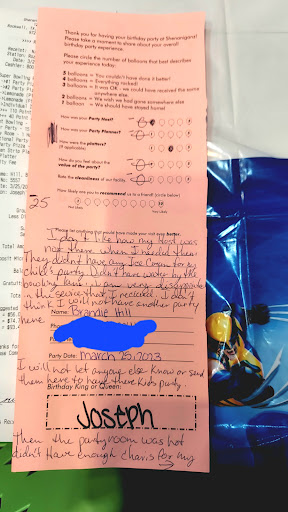 Thank you for having your birthday party at Shenanigans!
Please take a moment to share about your overall
birthday party experience.
Please circle the number of balloons that best describes
your experience today:
5 balloons = You couldn't have done it better!
4 balloons = Everything rocked!
3 balloons = It was OK - we could have received the same
anywhere
2 balloons = We wish we had gone somewhere else
1 balloon = We should have stayed home!
How was your Party Host?
How was your Party Planner?
How were the platters?
(if applicable)
How do you feel about the
value of the party?
Rate the cleanliness of our facility
How likely are you to recommend us to a friend? (circle below)
25
Please list anything that would have made your visit even better.
I don't like how my host was
not there when I needed them
They didn't have any Ice Cream for my
child's party. Didn't have water by the
bowling lane. I am very disappointed
in the service that I received. I don't
think I will not have another party
here
Name: Brandie Hill
Party Date: March 25, 2023
I will not let anyone else know or send
them here to have there kids party.
Birthday King or Queen:
Joseph
Then the party room was hot
didn't have enough chairs for my